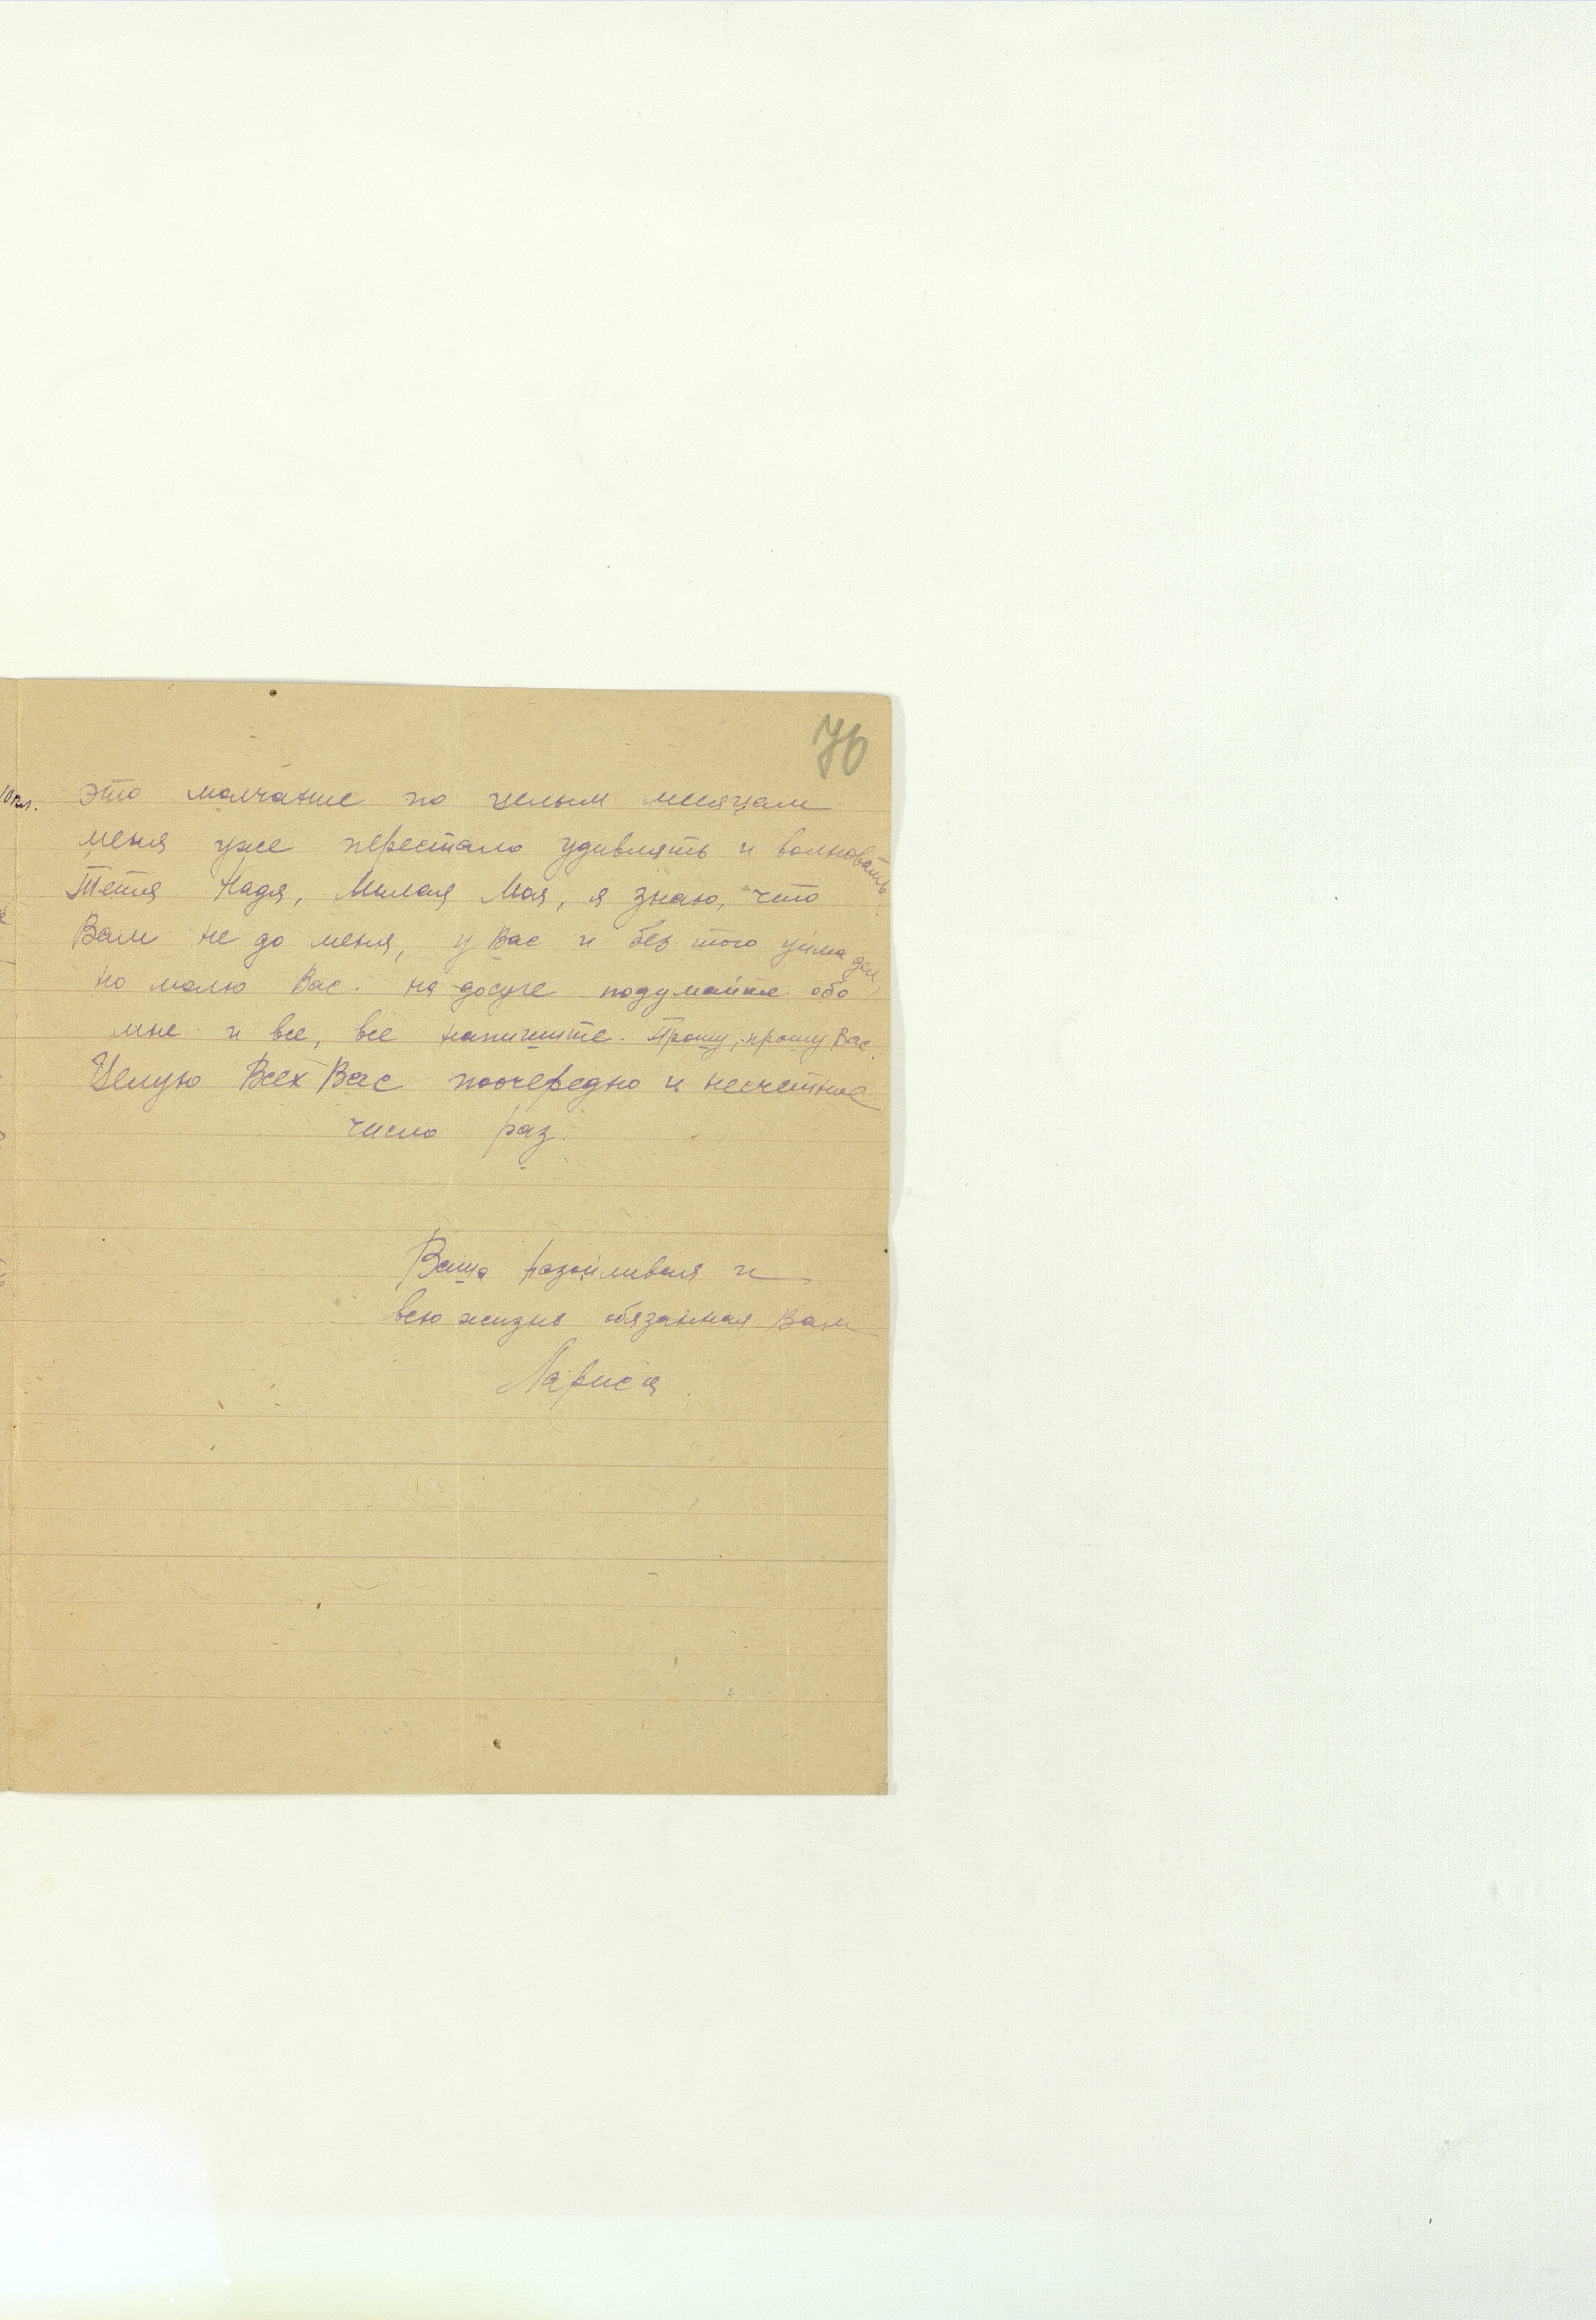 76
это молчание по целым месяцам
меня уже перестало удивлять и волновать
Тетя Надя, Милая Моя, я знаю, что
Вам не до меня, у Вас и без того уйма дел,
но молю Вас. на досуге подумайте обо
мне и все, все напишите. Прошу, прошу Вас.
Целую Всех Вас поочередно и несчетное
число раз.
Ваша назойливая и
всю жизнь обязанная Вам
Лариса